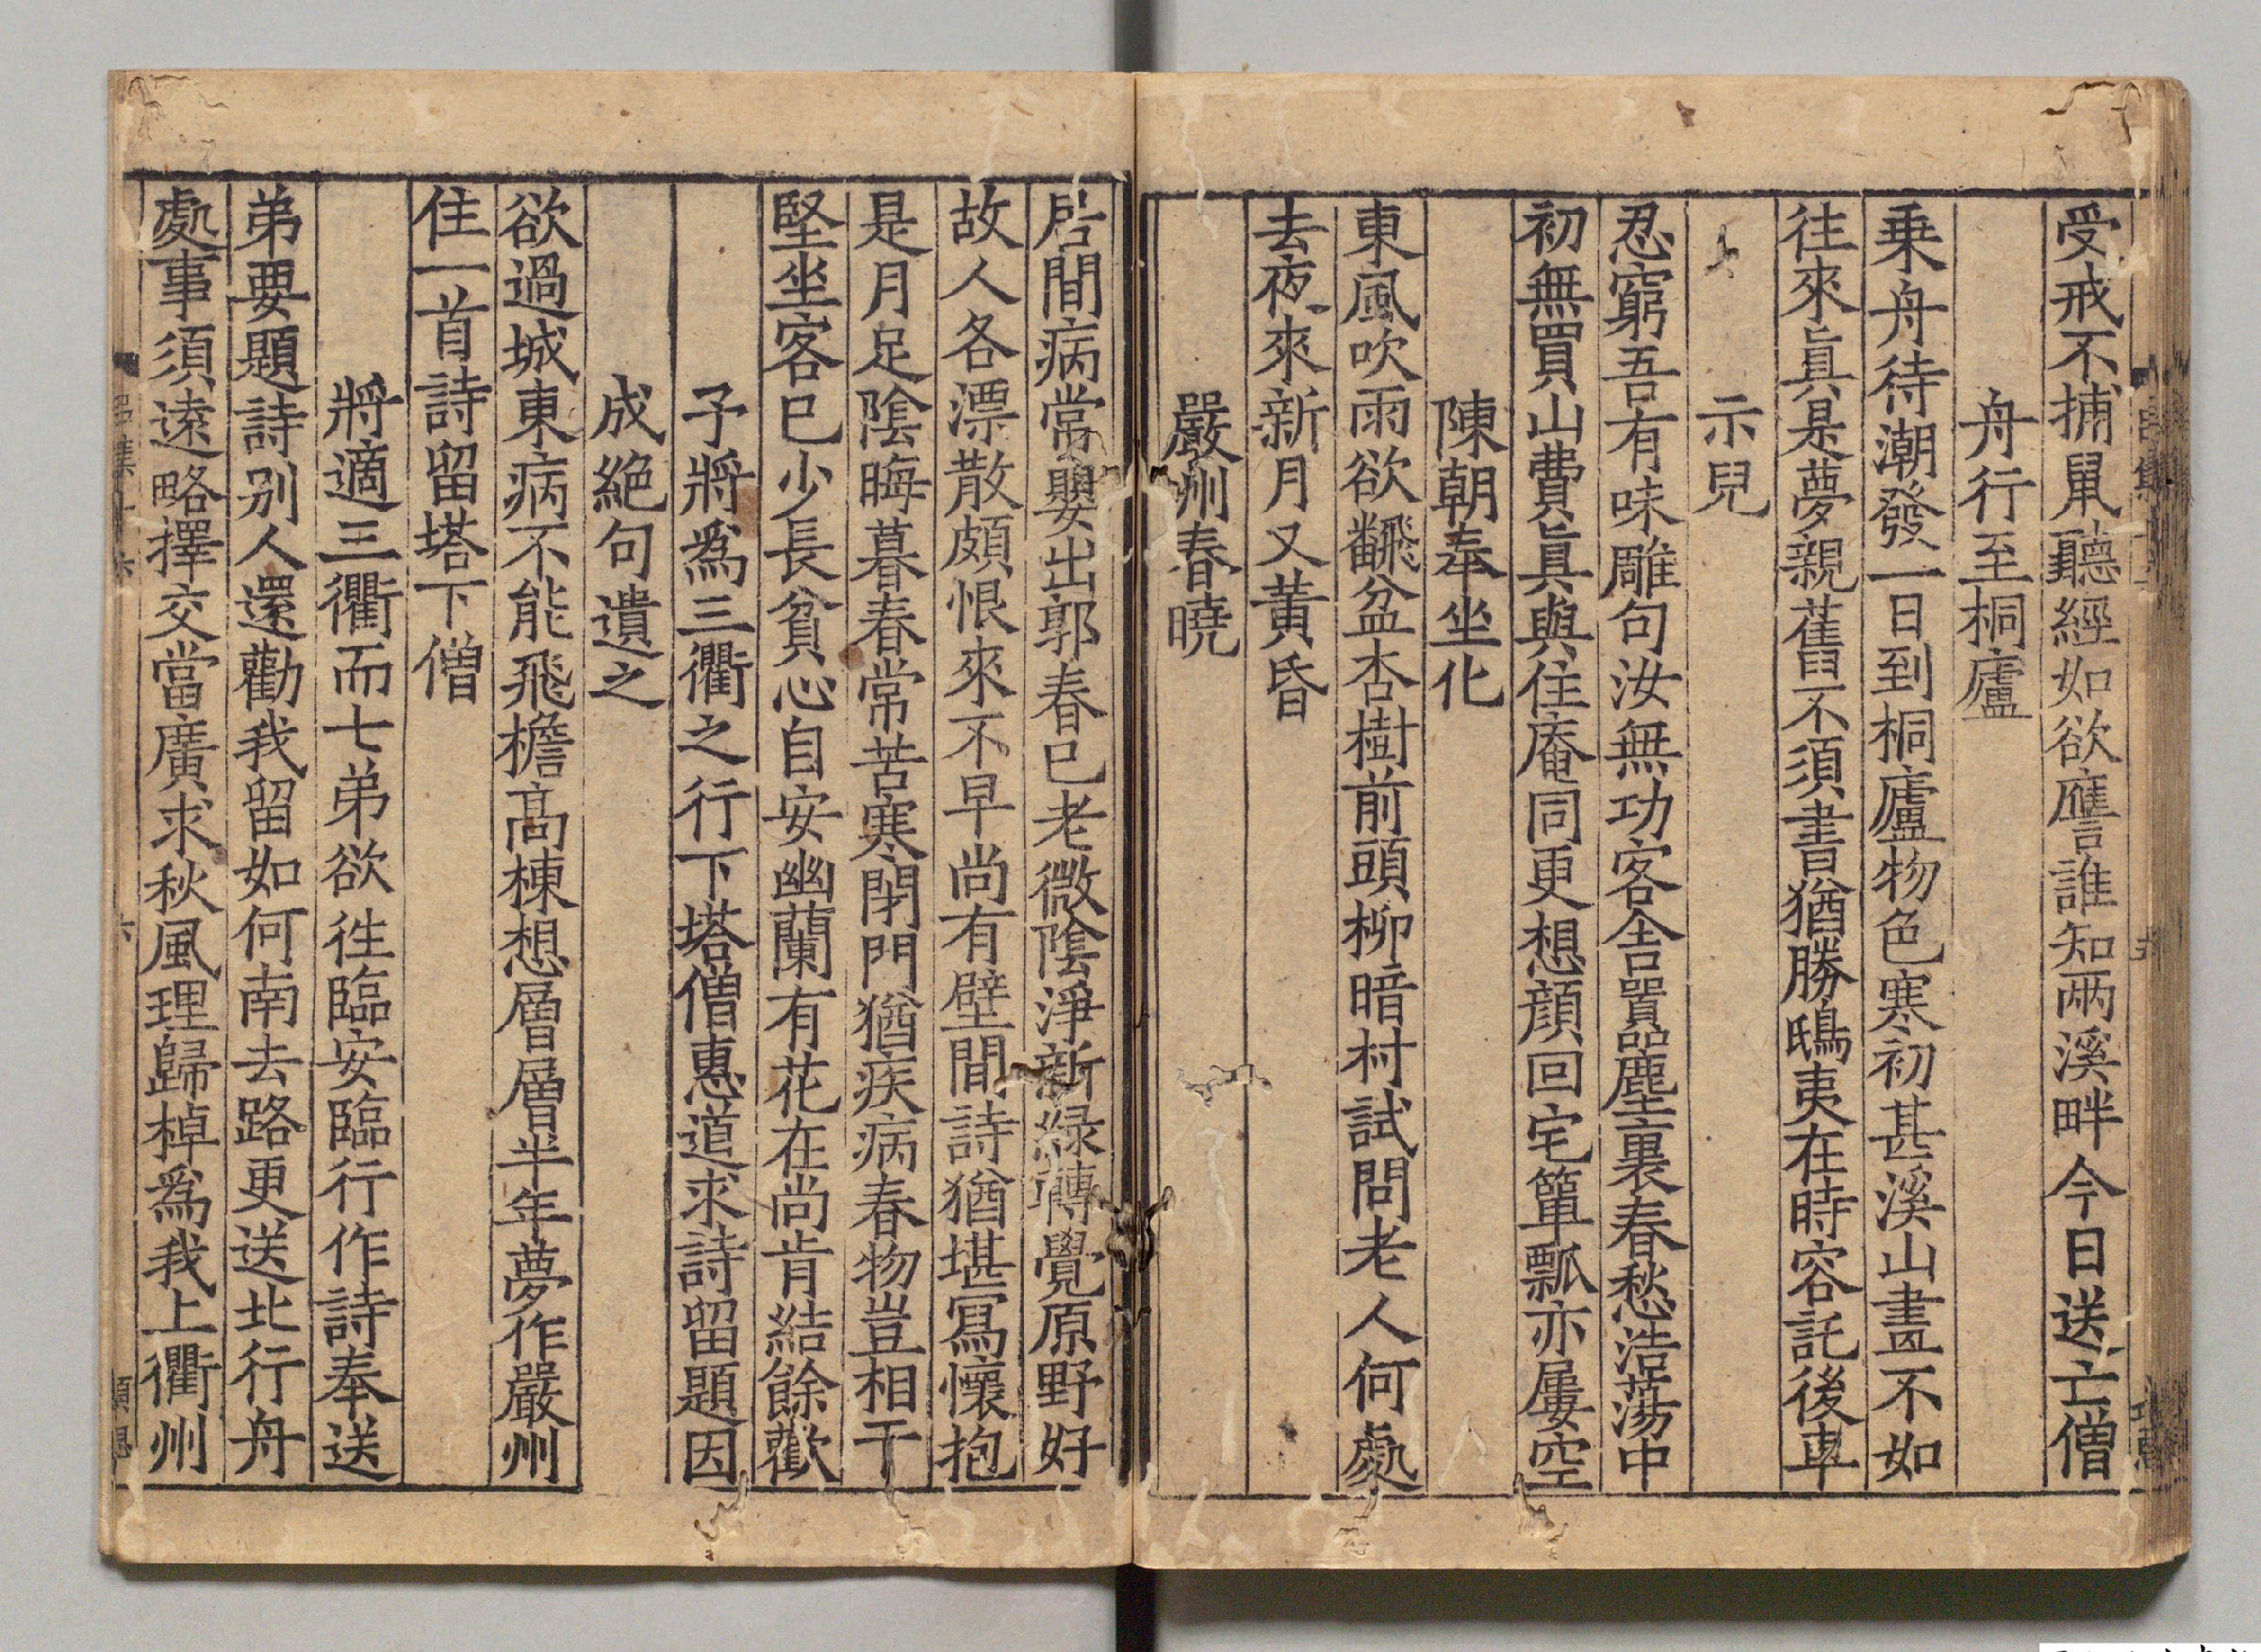 受戒不捕鼠聽經如欲譍誰知兩溪畔今日送亡僧
舟行至桐廬
乗舟待潮發一日到桐廬物色寒初甚溪山畫不如
往來眞是夢親舊不須書猶勝鴟夷在時容託後車
示兒
忍窮吾有味雕句汝無功客舍嚚塵裏春愁浩蕩中
初無買山費眞與住庵同更想顔回宅簞瓢亦屢空
陳朝奉坐化
東風吹雨欲飜盆杏樹前頭柳暗村試問老人何處
去夜來新月又黃昏
嚴州春曉
居間病常嬰出郭春已老微隂淨新緑薄覺原野好
故人各漂散頗恨來不早尚有壁間詩猶堪冩懷抱
是月足隂晦暮春常苦寒閉門猶疾病春物豈相干
堅坐客已少長貧心自安幽蘭有花在尚肯結餘歡
予將爲三衢之行下塔僧惠道求詩留題因
成絶句遺之
欲過城東病不能飛檐髙棟想層層半年夢作嚴州
住一首詩留塔下僧
將適三衢而七弟欲徃臨安臨行作詩奉送
弟要題詩别人還勸我留如何南去路更送北行舟
處事須遠略擇交當廣求秋風理歸棹爲我上衢州